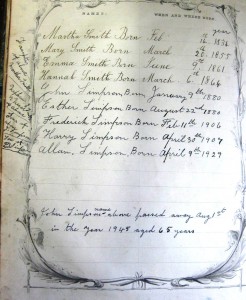 NAMES. WHEN AND WHERE BORN.
years
Martha Smith Born Feb
Mary Smith Born March 1855
Emma Smith Born June 9th 1861
Hannah Smith Born March 6th 1864
John Simpson Born January 3th 1880
Esther Simpson Born August 22nd 1880
Frederick Simpson Born Feb 11th 1906
Harry Simpson Born April 30th 1907
Allan Simpson Born April 9th 1929
John Simpson name above passed away Aug 1st
in the year 1945 aged 65 years